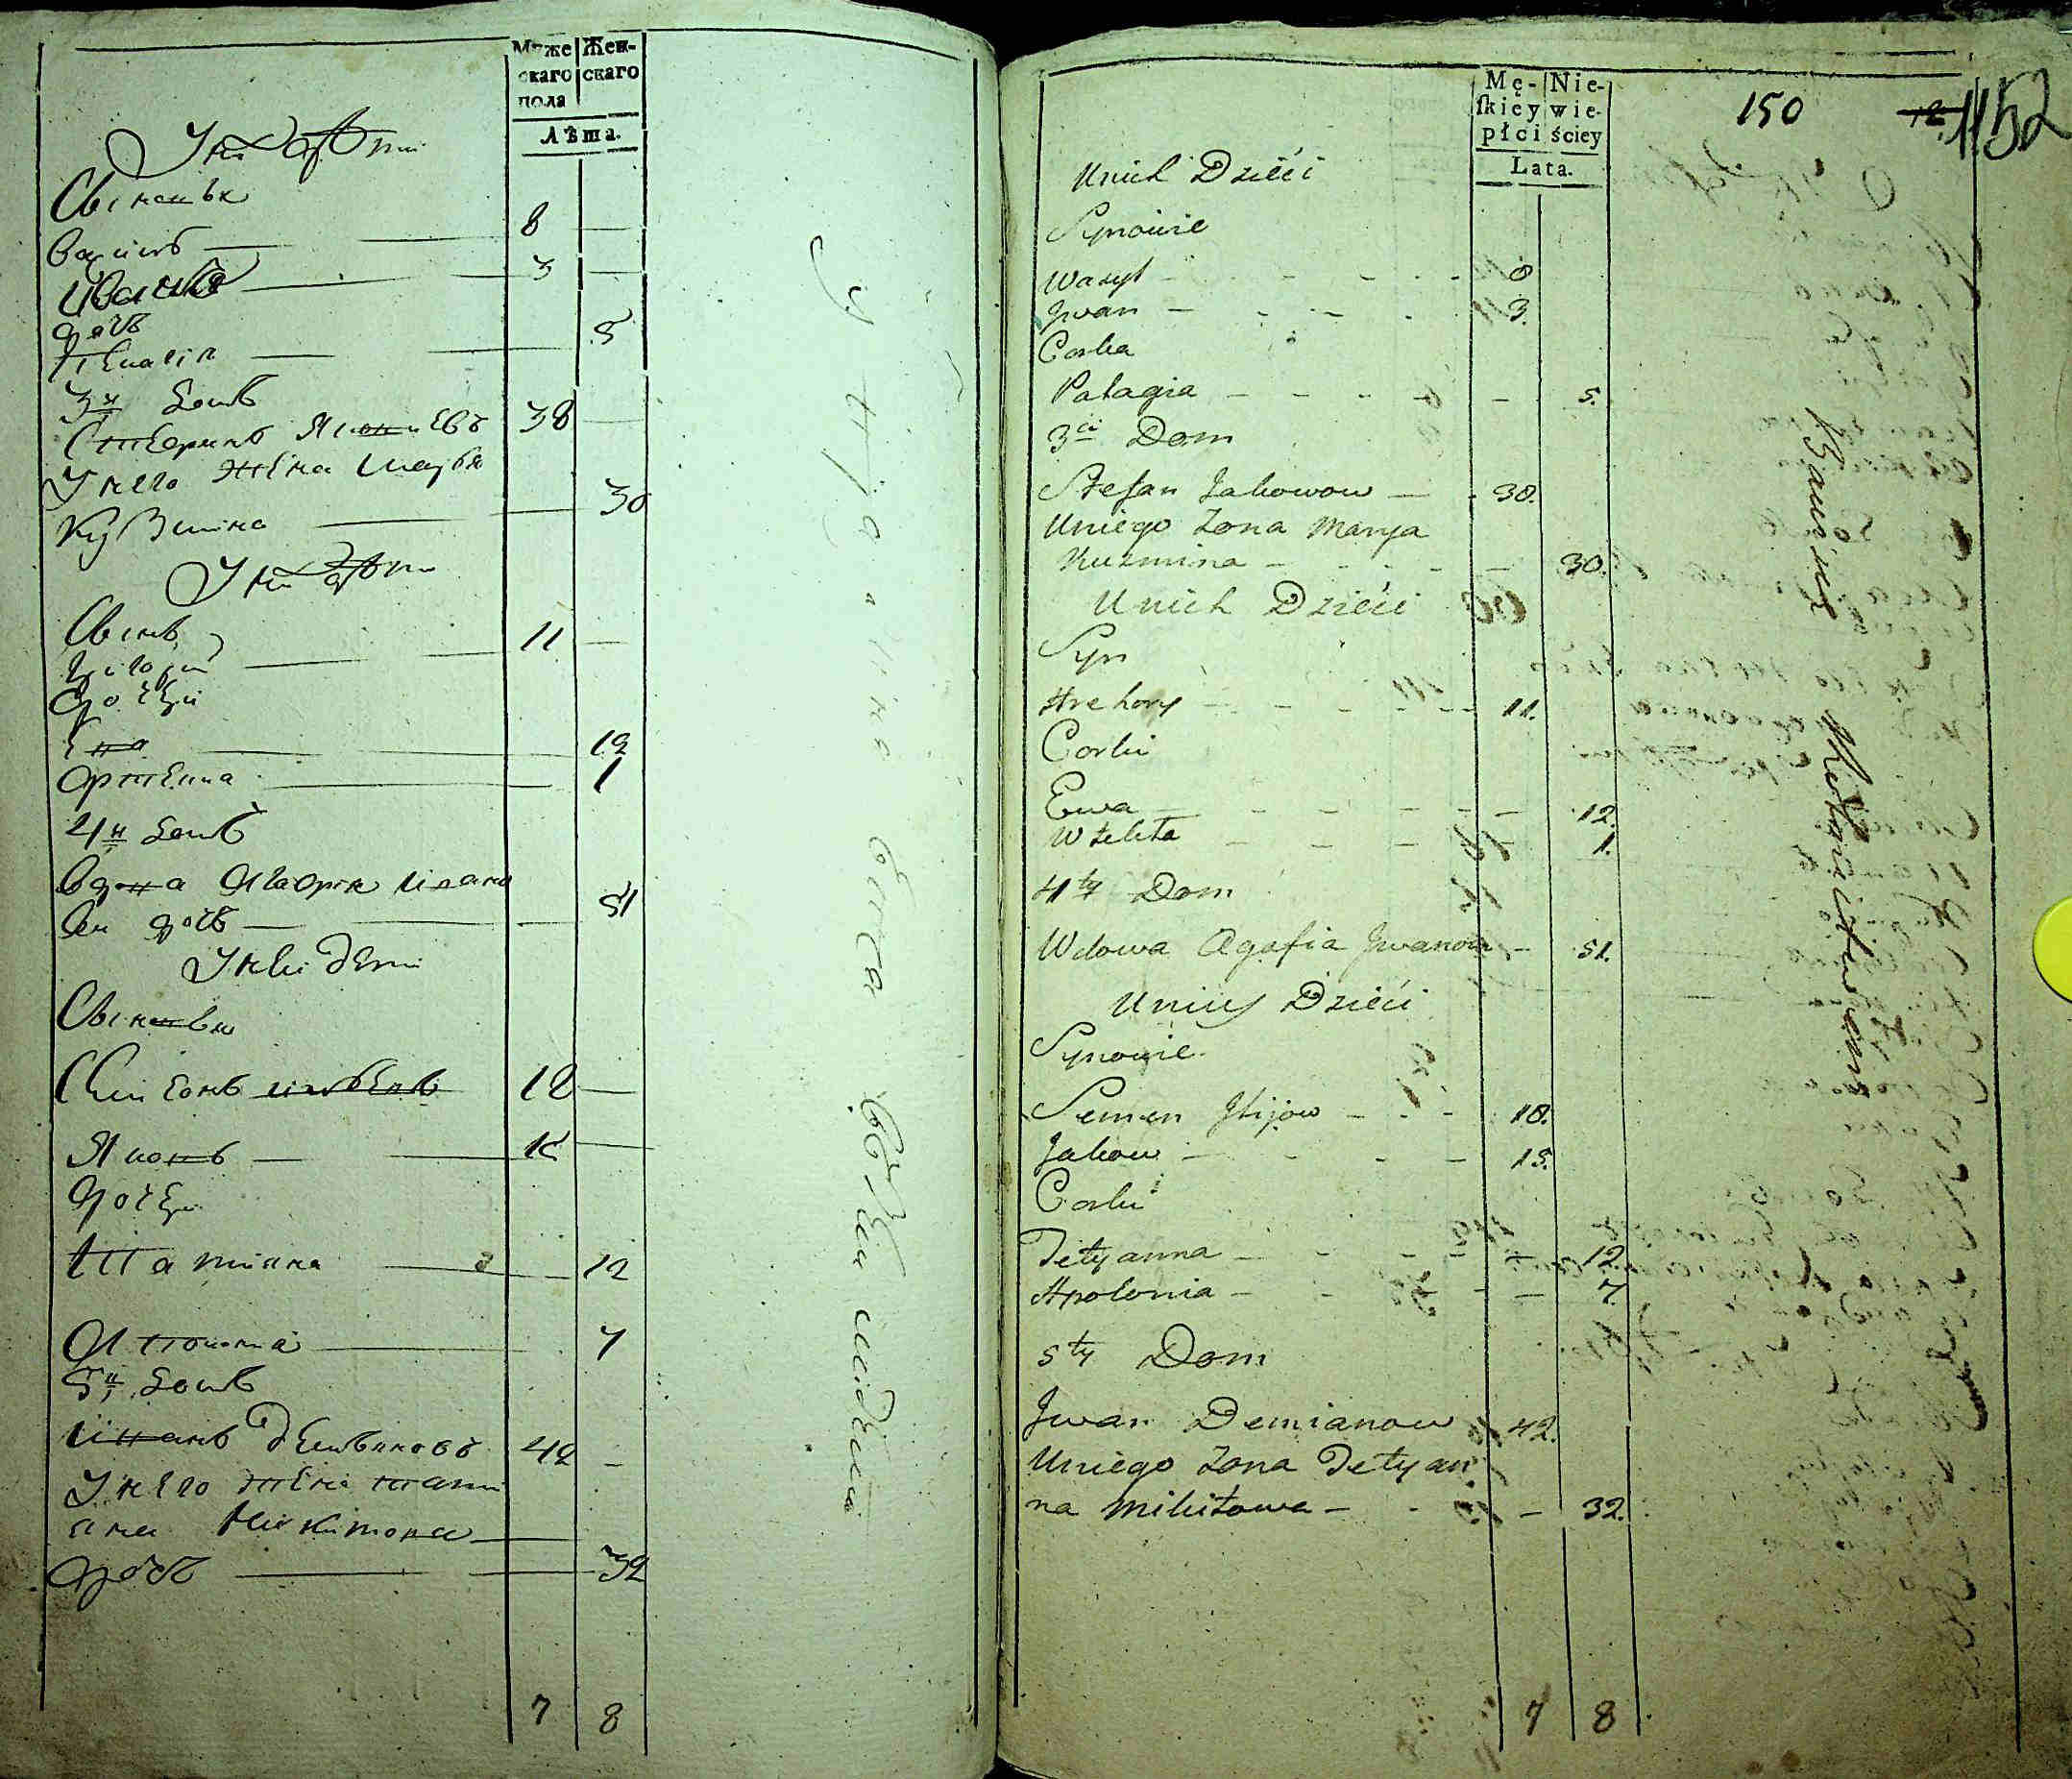 Муже Жен-
скаго скаго
пола
Лѣта.
У них дѣти
Сыновья
Василь 8 —
Иванъ 3 —
дочь
Пелагія 5
3й домъ
Стефанъ Яковлевъ 38 —
У него жена Марья
Кузмина 30
У них дѣти
Сынъ
Григорий 11 —
дочери
Ева 12
1
4й домъ
вдова Агафія Ивано
ва дочь 51
У неи дети
Сыновья
Симеонъ 18 —
Яковъ 15 —
дочери
Татияна 12
Аполония 7
5й домъ
Иванъ Демьяновъ 42 —
У него жена Тати
яна Микитова
дочь 32
7 8
Mę- Nie-
skiey wie-
płci ściey
Lata.
150
152
Unich Dzieći
Synowie
Wasyl 8
Jwan 3.
Corka
Palagia 5.
3ci Dom
Stefan Jakowow 38.
Uniego Zona Marya
Kuzmina 30.
Unich Dzieći
Syn
Hrehory 11.
Corki
Ewa 12.
1.
4ty Dom
Wdowa Agafia Jwanow 51.
Uniey Dzieći
Synowie.
Semen 18.
Jakow 15.
Corki
Tetyanna 12
Apolonia 7.
5ty Dom
Jwan Demianow 42.
Uniego Zona Tetyan
na Mikitowa 32.
7 8